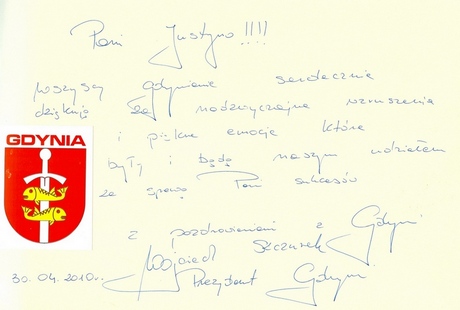 Pani Justyno!!!!
wszyscy Gdynianie serdecznie
dziękują za nadzwyczajne wzruszenia
i piękne emocje które
były i będą naszym udziałem
za sprawą Pani sukcesów
z pozdrowieniami z Gdyni
Wojciech Szczurek
Prezydent Gdyni
GDYNIA
30.04.2010r.